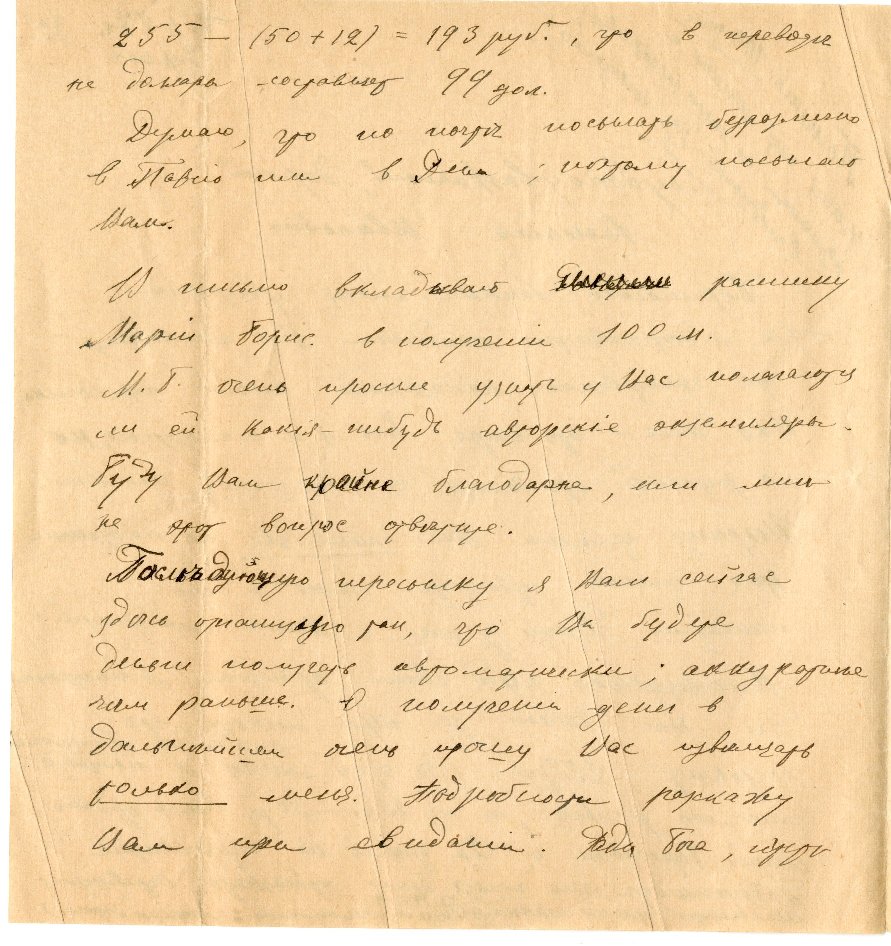 255 – (50 + 12) = 193 руб., что в переводе
на доллары составляет 99 дол.
Думаю, что по почте посылать безразлично
в Париж или в ; поэтому посылаю
Вам.
В письмо вкладываю расписку
Маріи Борис. в полученіи 100 м.
М. Б. очень просит узнать у Вас полагаются
ли ей какія-нибудь авторскіе экземпляры.
Буду Вам крайне благодарна, если мне
на этот вопрос ответите.
Последующую пересылку я Вам сейчас
здесь организую так, что Вы будете
деньги получать автоматически; аккуратнее
чем раньше. О полученіи денег в
дальнейшем очень прошу Вас извещать
только меня. Подробности расскажу
Вам при свиданіи. Ради Бога,